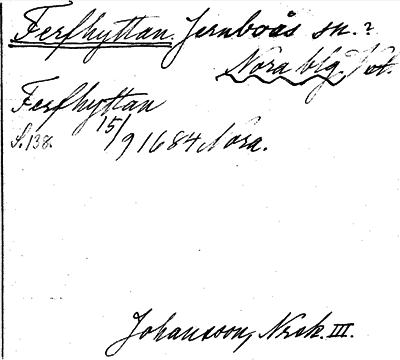 Ferfhyttan. Jernboås sn.?
Nora blg.
Ferfhyttan
S. 138. 15/9 1684 Nora.
Johansson, Nrsk. III.